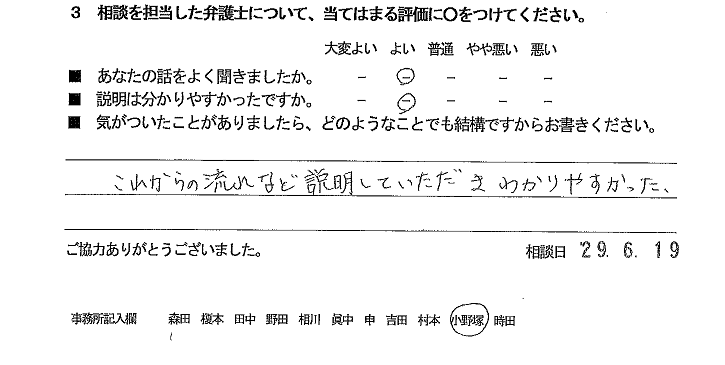 3 相談を担当した弁護士について、当てはまる評価に○をつけてください。
大変よい よい 普通 やや悪い 悪い
■ あなたの話をよく聞きましたか。 － － － － －
■ 説明は分かりやすかったですか。 － － － － －
■ 気がついたことがありましたら、どのようなことでも結構ですからお書きください。
これからの流れなど説明していただき わかりやすかった、
ご協力ありがとうございました。 相談日 '29. 6. 19
事務所記入欄 森田 榎本 田中 野田 相川 眞中 申 吉田 村本 小野塚 時田